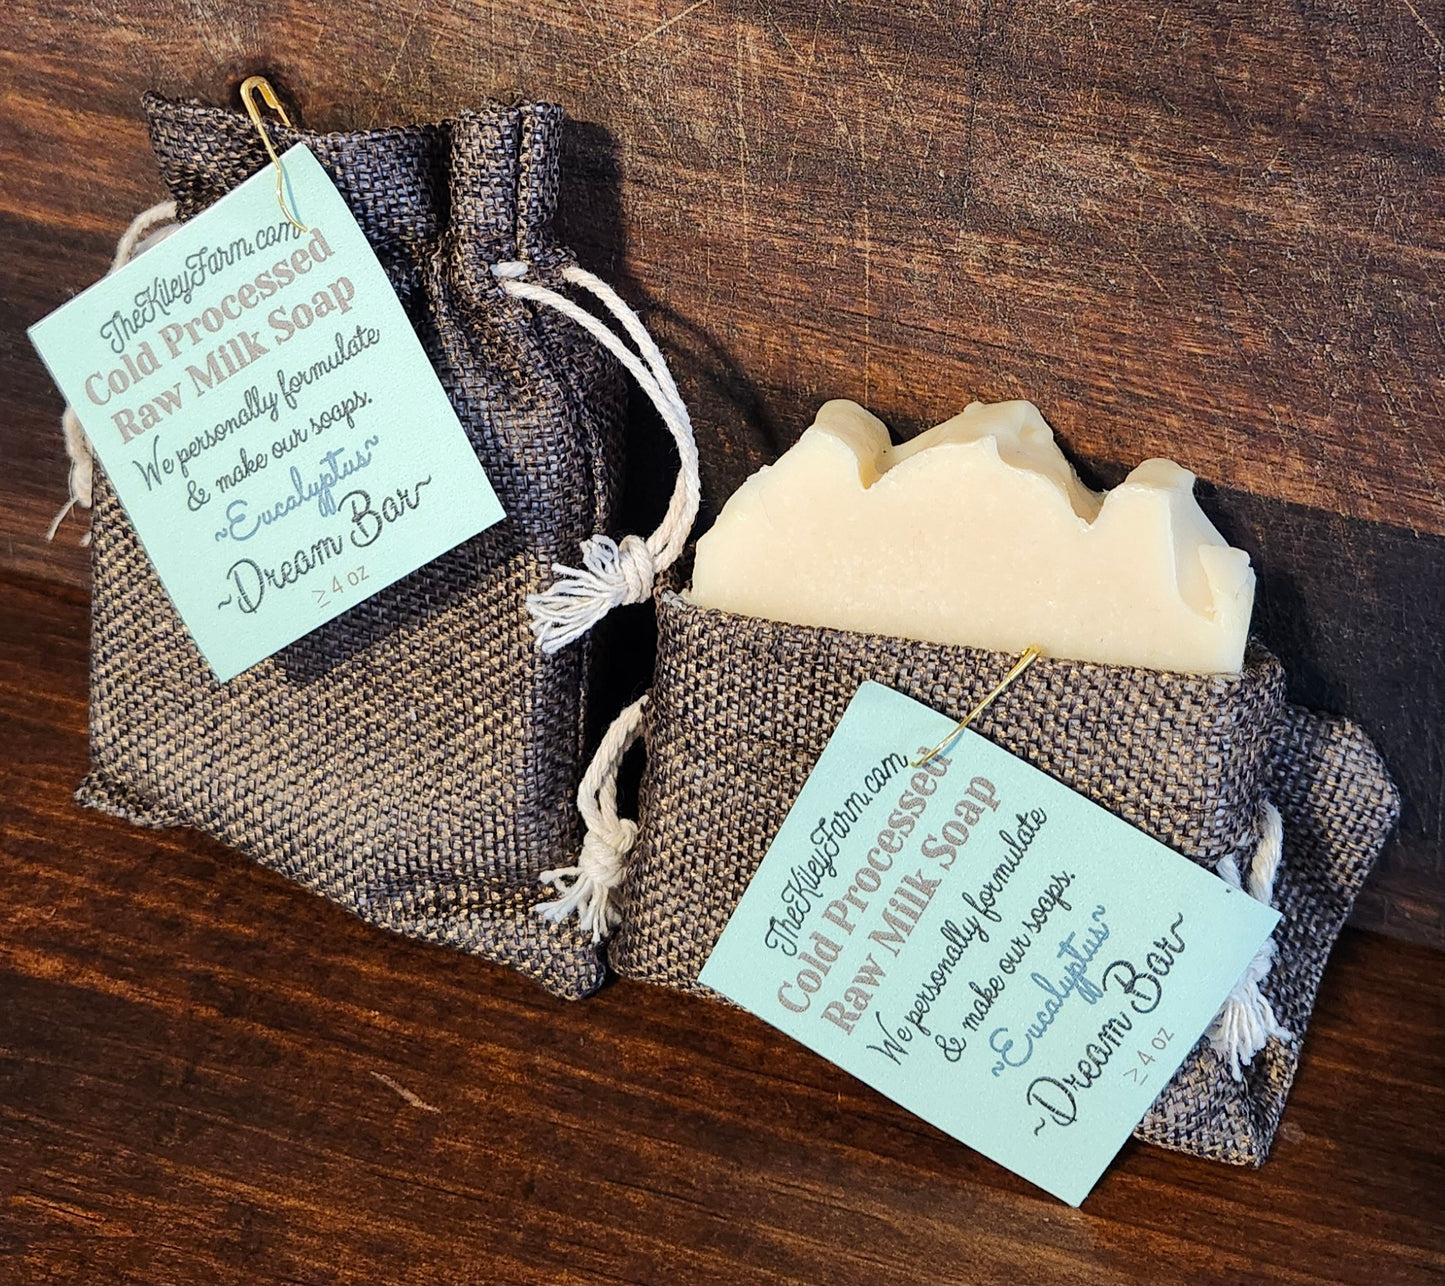 TheKileyFarm.com
Cold Processed
Raw Milk Soap
We personally formulate
& make our soaps.
~Eucalyptus~
~Dream Bar~
≥ 4 oz
TheKileyFarm.com
Cold Processed
Raw Milk Soap
We personally formulate
& make our soaps.
~Eucalyptus~
~Dream Bar~
≥ 4 oz